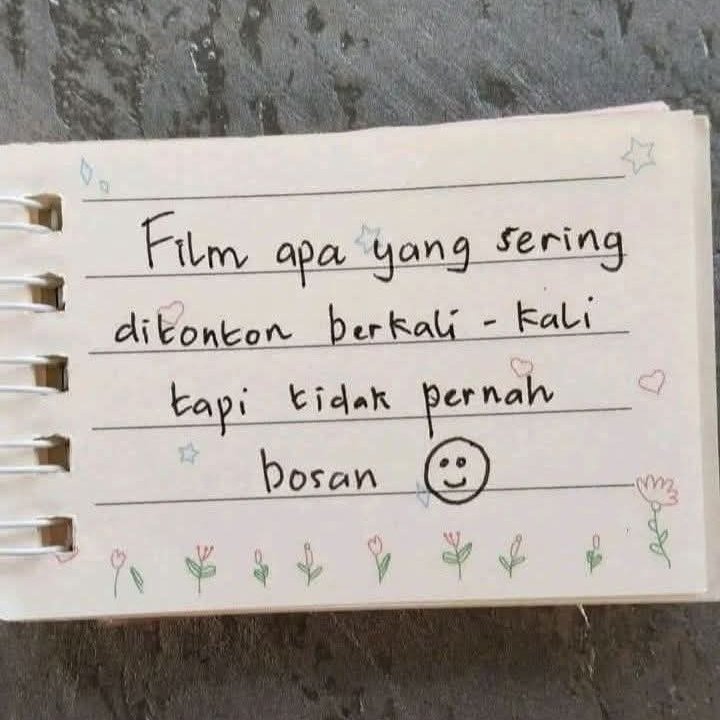 Film apa yang sering
ditonton berkali - kali
tapi tidak pernah
bosan